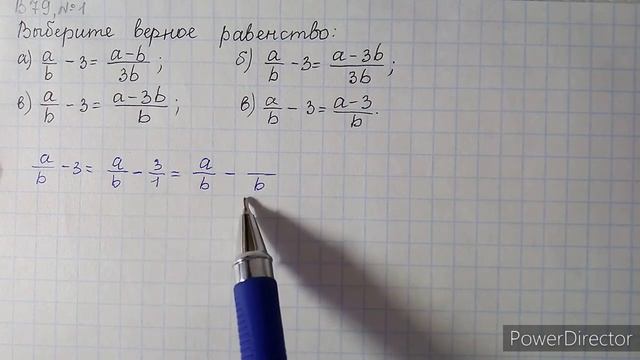 В79, №1
Выберите верное равенство:
а) a/b - 3 = (a-b)/3b ; б) a/b - 3 = (a-3b)/3b ;
в) a/b - 3 = (a-3b)/b ; в) a/b - 3 = (a-3)/b .
a/b - 3 = a/b - 3/1 = a/b - /b
PowerDirector